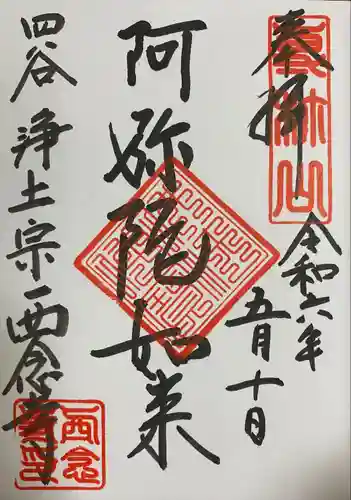 奉拝
令和六年
五月十日
阿弥陀如来
四谷 浄土宗 西念寺
西念寺印